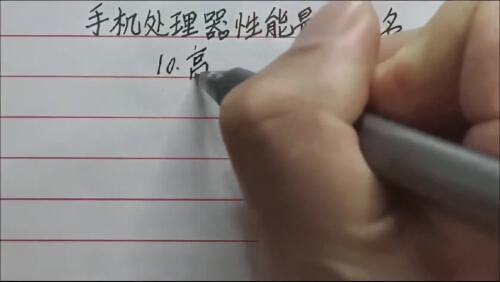 手机处理器性能最名
10.高